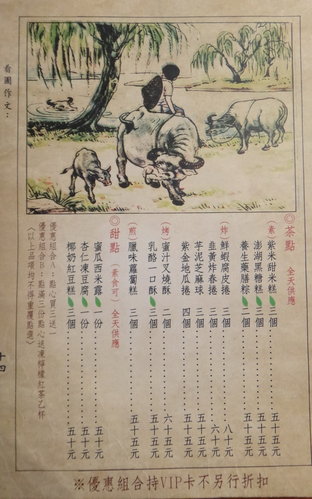 看圖作文：
◎茶點 全天供應
(素) 紫米甜米糕 三個 五十五元
澎湖黑糖糕 三個 五十五元
養生藥膳粽 二個 五十五元
(炸) 鮮蝦腐皮捲 三個 八十元
韭黃炸春捲 三個 六十元
芋泥芝麻球 三個 五十五元
紫金地瓜捲 四個 五十五元
(烤) 蜜汁叉燒酥 二個 六十五元
乳酪一口酥 三個 五十五元
(煎) 臘味蘿蔔糕 三個 五十五元
◎甜點 (素食可) 全天供應
蜜瓜西米露 一份 五十元
杏仁凍豆腐 一份 五十元
椰奶紅豆糕 三個 五十元
優惠組合A：點心買三送一
優惠組合B：點滿三份點心送凍檸檬紅茶乙杯
(以上品項均不得重覆點選)
十四
※優惠組合持VIP卡不另行折扣